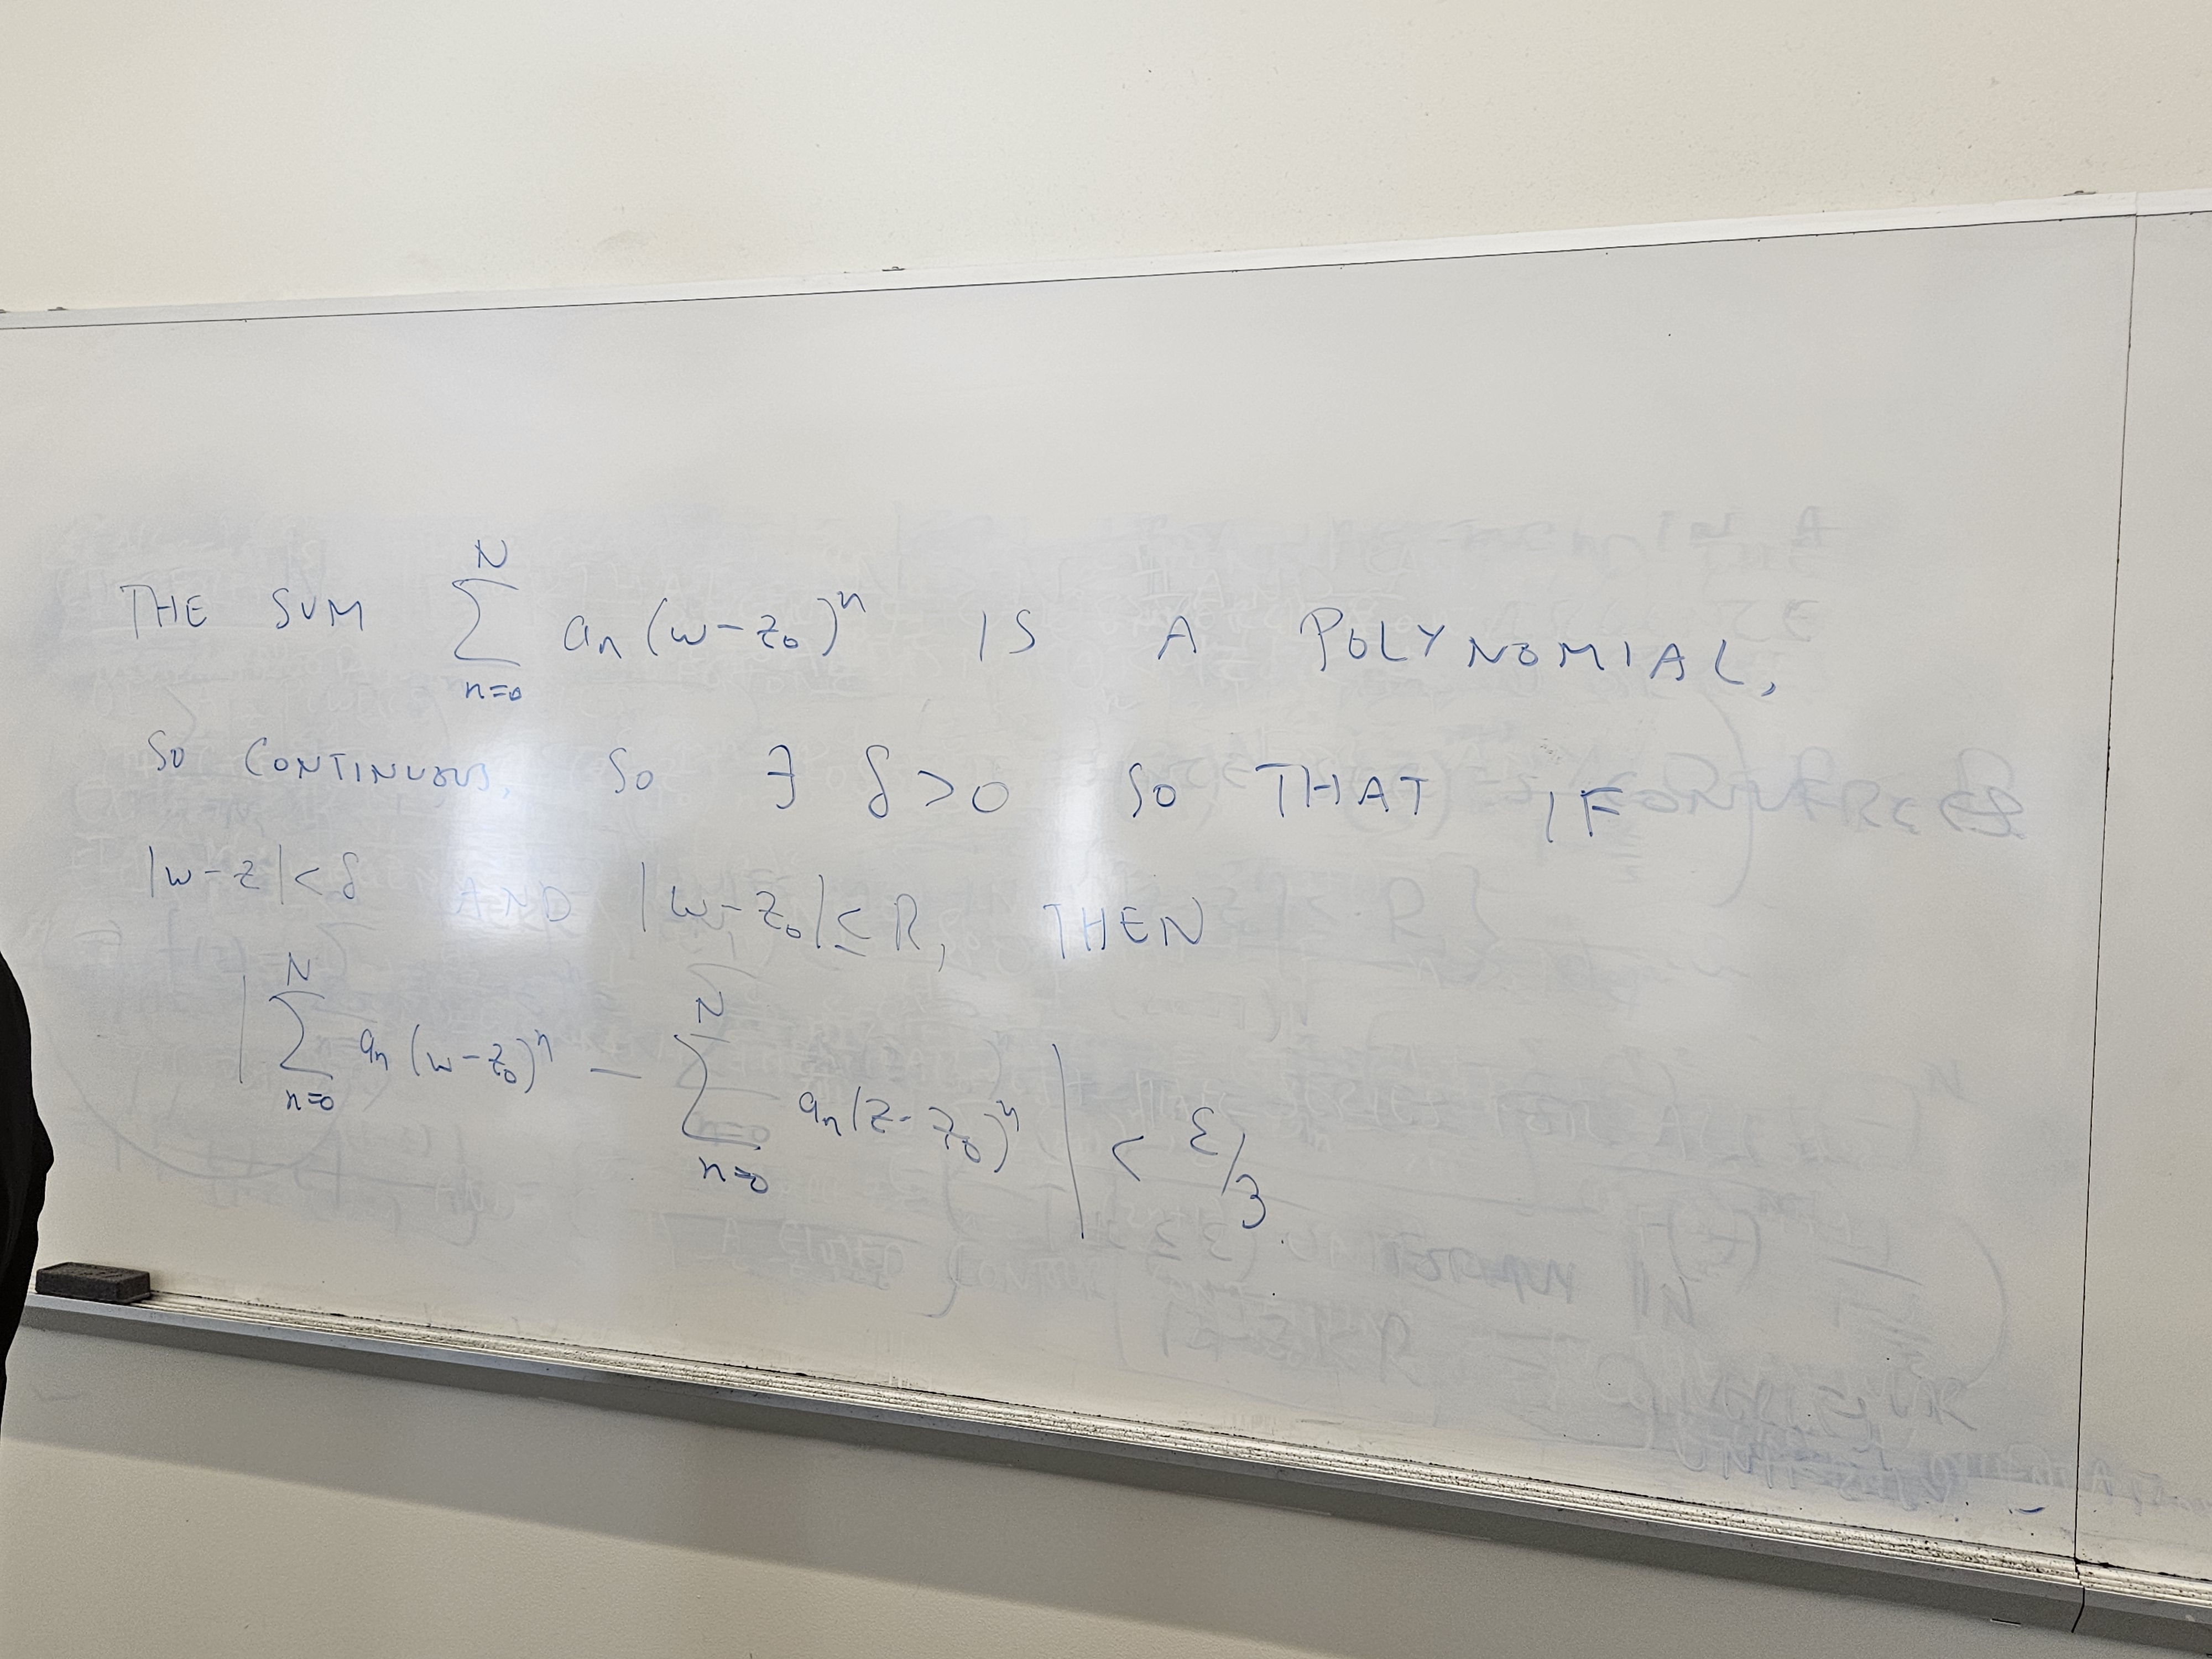 THE SUM \sum_{n=0}^{N} a_n (w-z_0)^n IS A POLYNOMIAL,
SO CONTINUOUS, SO ∃ δ>0 SO THAT IF
|w-z|<δ AND |w-z_0|≤R, THEN
| \sum_{n=0}^{N} a_n (w-z_0)^n - \sum_{n=0}^{N} a_n (z-z_0)^n | < ε/3.